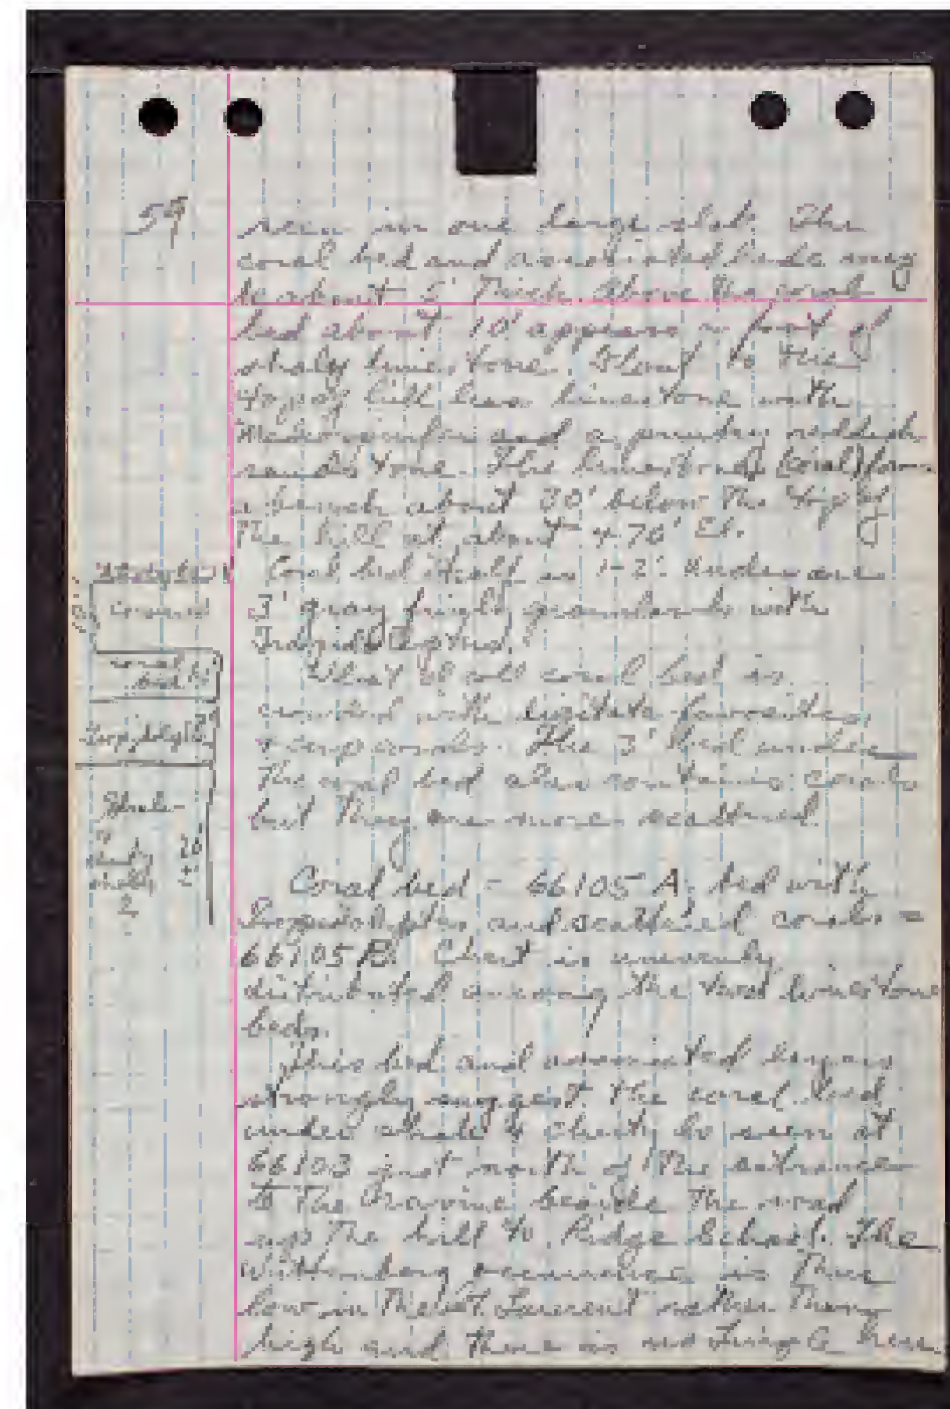 59
seen in one large slab. The
coral bed and associated beds may
be about 5' Thick. Above the coral
bed about 10' appears a foot of
shaly limestone. Float to the
top of hill has limestone with
and a reddish
sandstone. The limestone (coral) forms
a bench about 30' below The top of
The hill at about 470' El.
Coral bed itself is 1-2'. Under are
3' gray with
What I call coral bed is
crowded with digitate favosites
+ cup corals. The 3' bed under
The coral bed also contains corals
but They are more scattered.
covered
coral
bed
Shale
shaly
2
Coral bed - 66105 A. bed with
and scattered corals =
66105B. Chert is unevenly
distributed among the two limestone
beds.
This bed and associated layers
strongly suggest the coral bed
under shale & cherty ls seen at
66103 just north of The entrance
to The ravine beside The road
up The hill to Ridge School. The
Wittenberg occurrence is Thus
low in The St. Laurent rather Than
high and there is no here